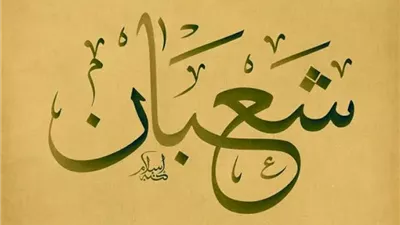 شعبان